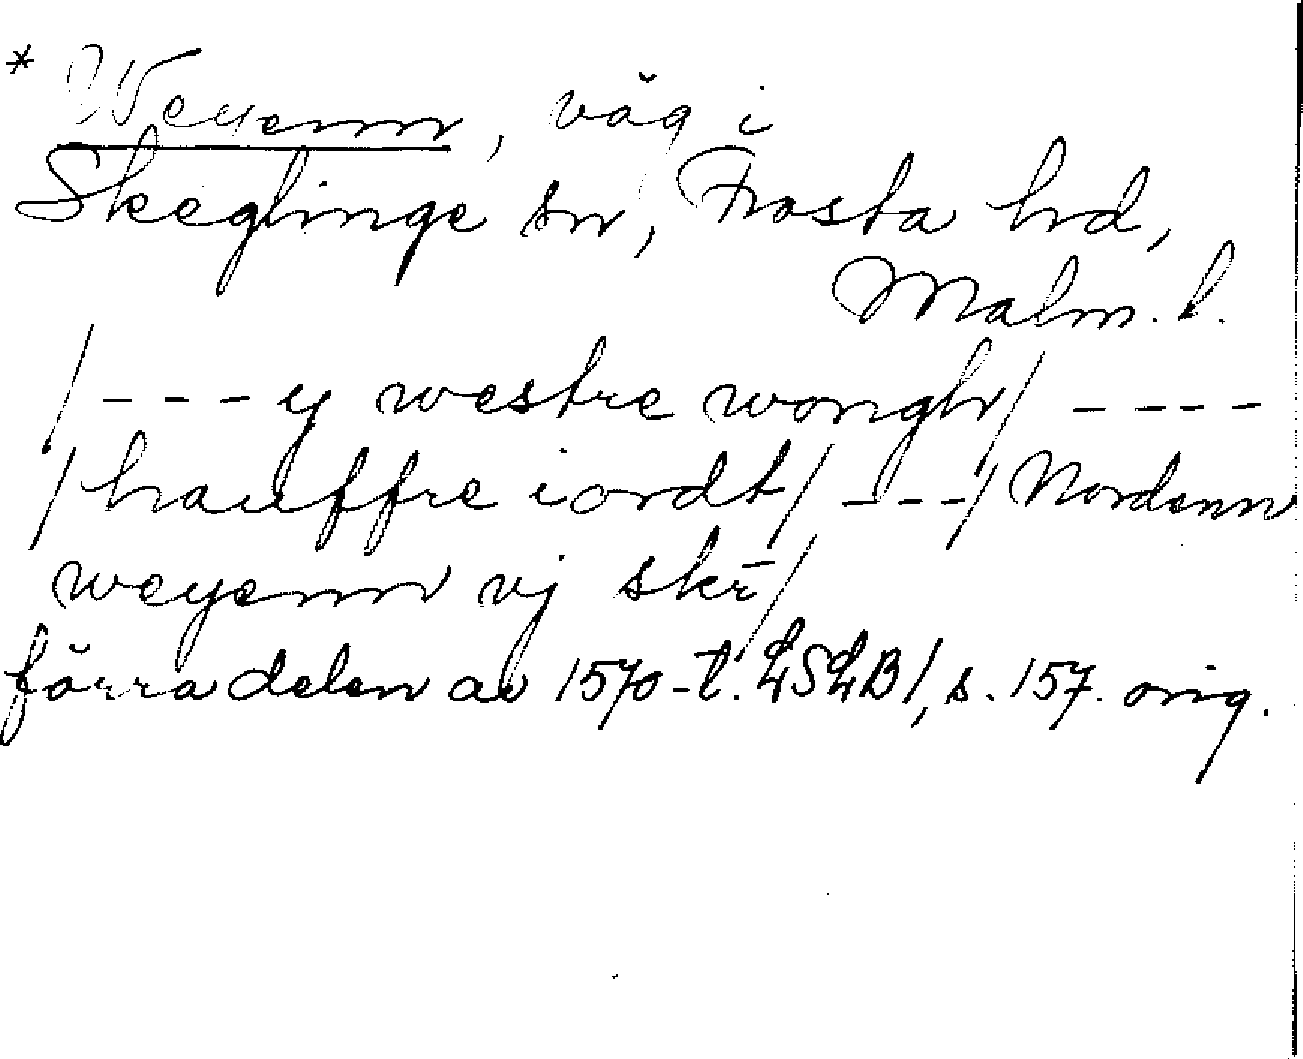 * Weyenn, väg i
Skeglinge sn, Frosta hd,
Malm. l.
/---y westre wongh/ ----
/hauffre iordt/ ---/ Nordenn
weyenn vj skr̄/
förra delen av 1570-t. LSLB1, s. 157. orig.